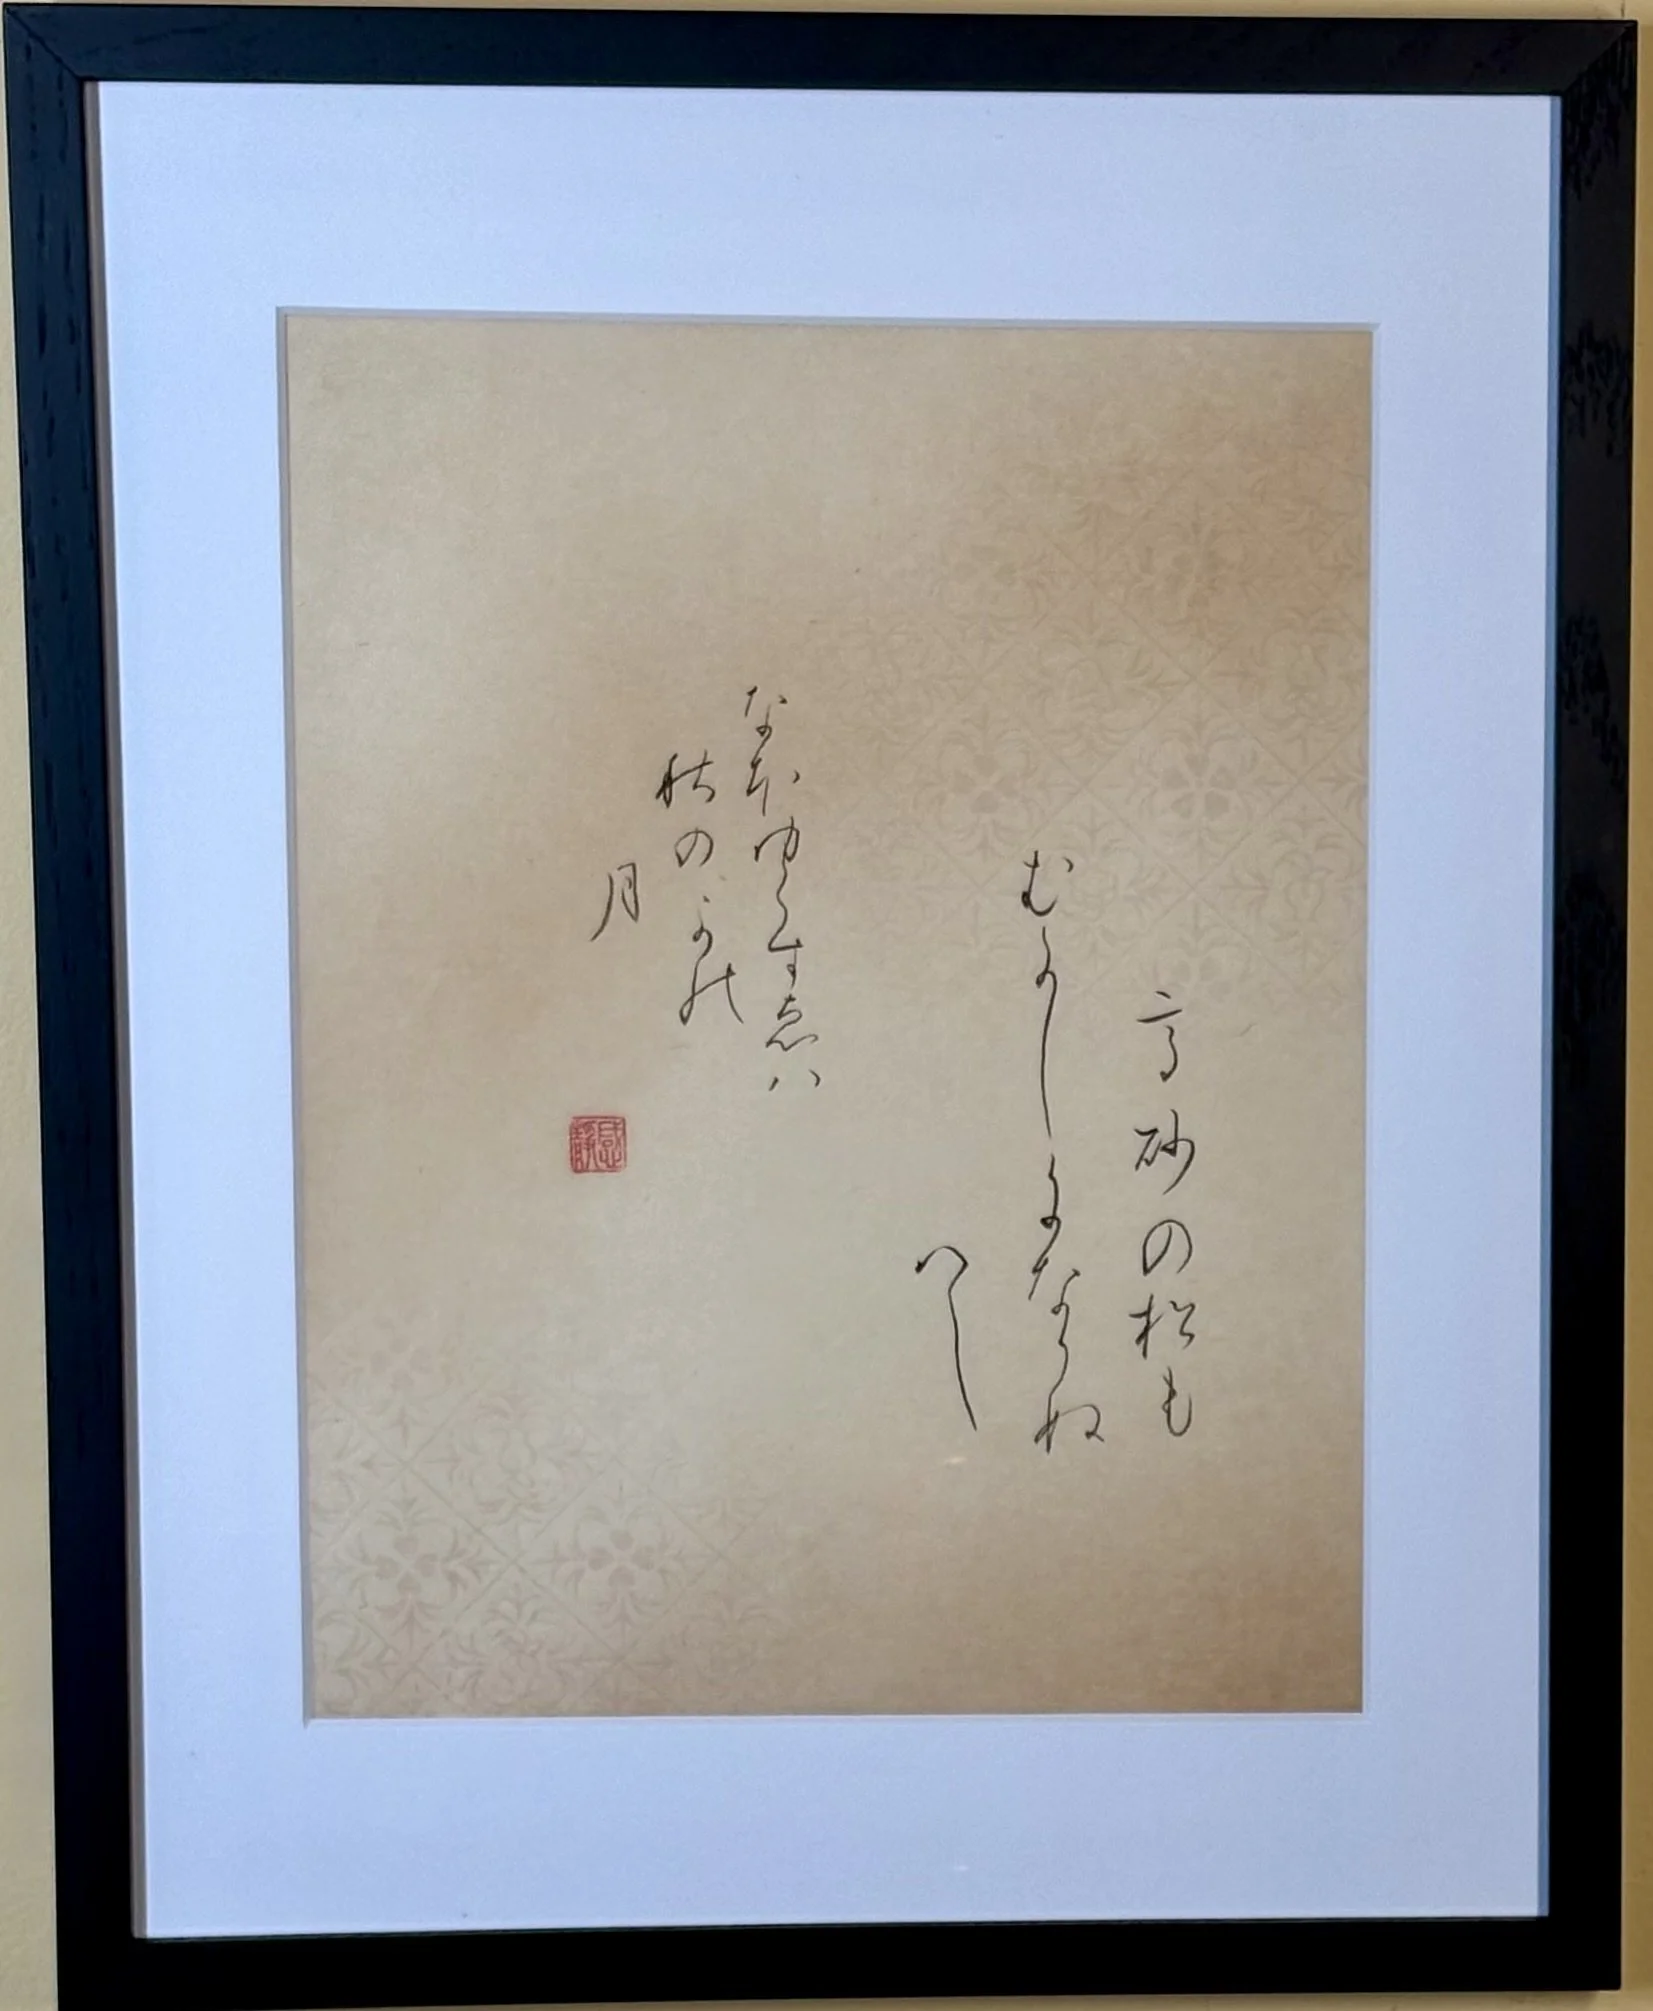 高砂の松も
むかしになりぬ
へし
なほゆくすゑハ
秋のよの
月